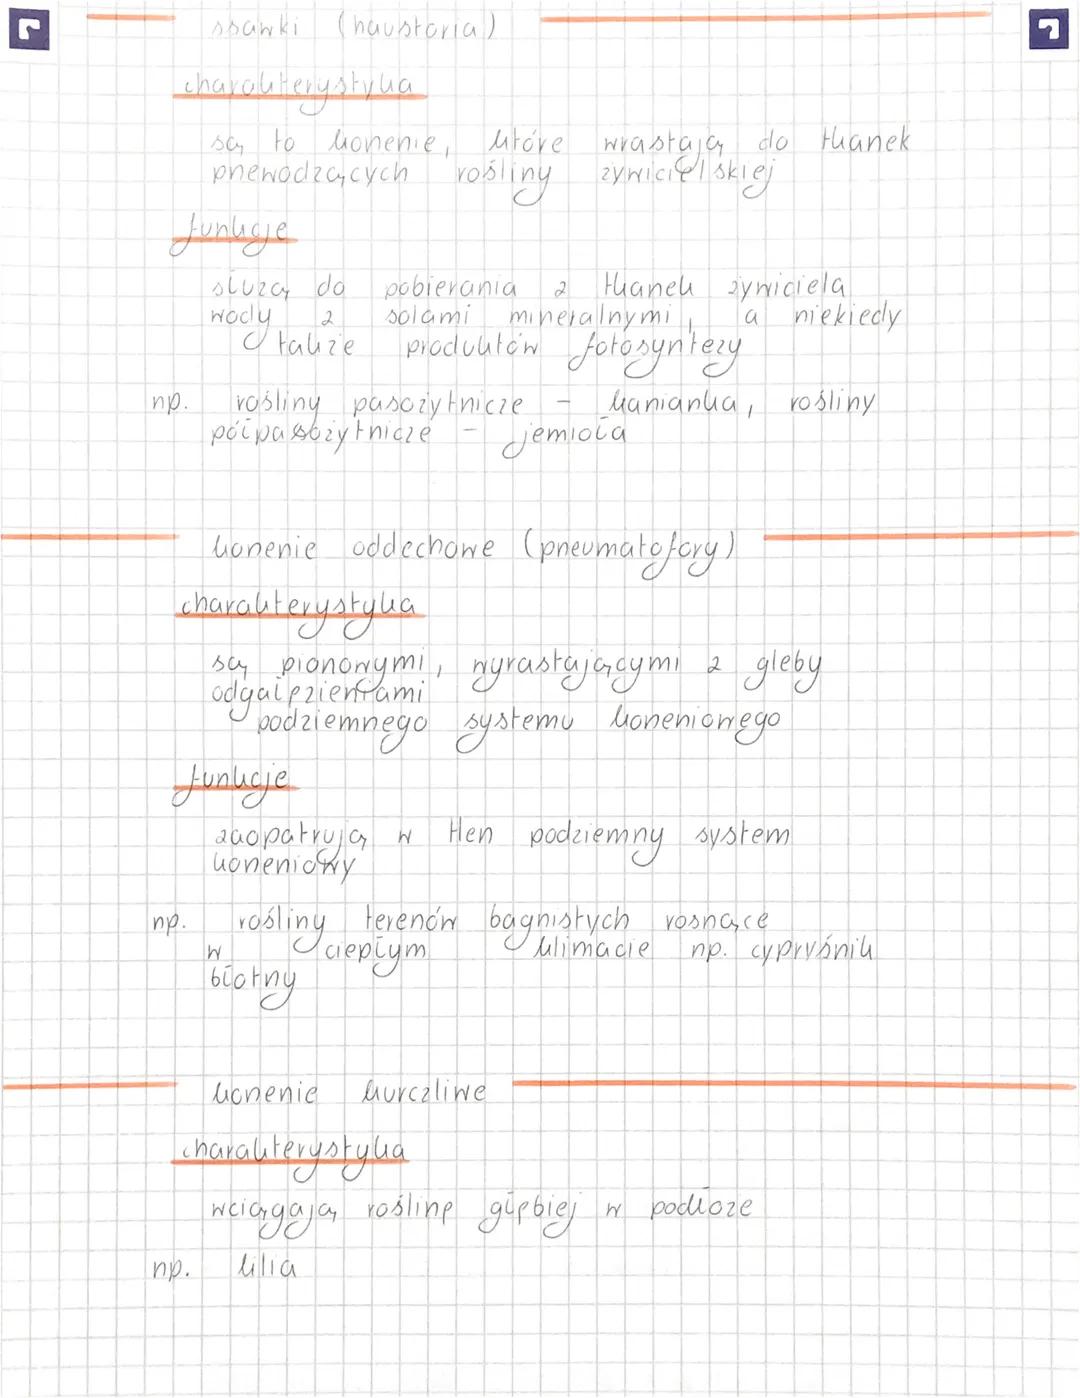 ssawki (haustoria)
charakterystyka
są to korzenie, które wrastają do tkanek
przewodzących rośliny żywicielskiej
funkcje
służą do pobierania z tkanek żywiciela
wody z solami mineralnymi, a niekiedy
także produktów fotosyntezy
np. rośliny pasożytnicze - kanianka, rośliny
półpasożytnicze - jemioła
korzenie oddechowe (pneumatofory)
charakterystyka
są pionowymi, wyrastającymi z gleby
odgałęzieniami
podziemnego systemu korzeniowego
funkcje
zaopatrują w tlen podziemny system
korzeniowy
np. rośliny terenów bagnistych rosnące
w ciepłym klimacie np. cypryśnik
błotny
korzenie kurczliwe
charakterystyka
wciągają roślinę głębiej w podłoże
np. lilia